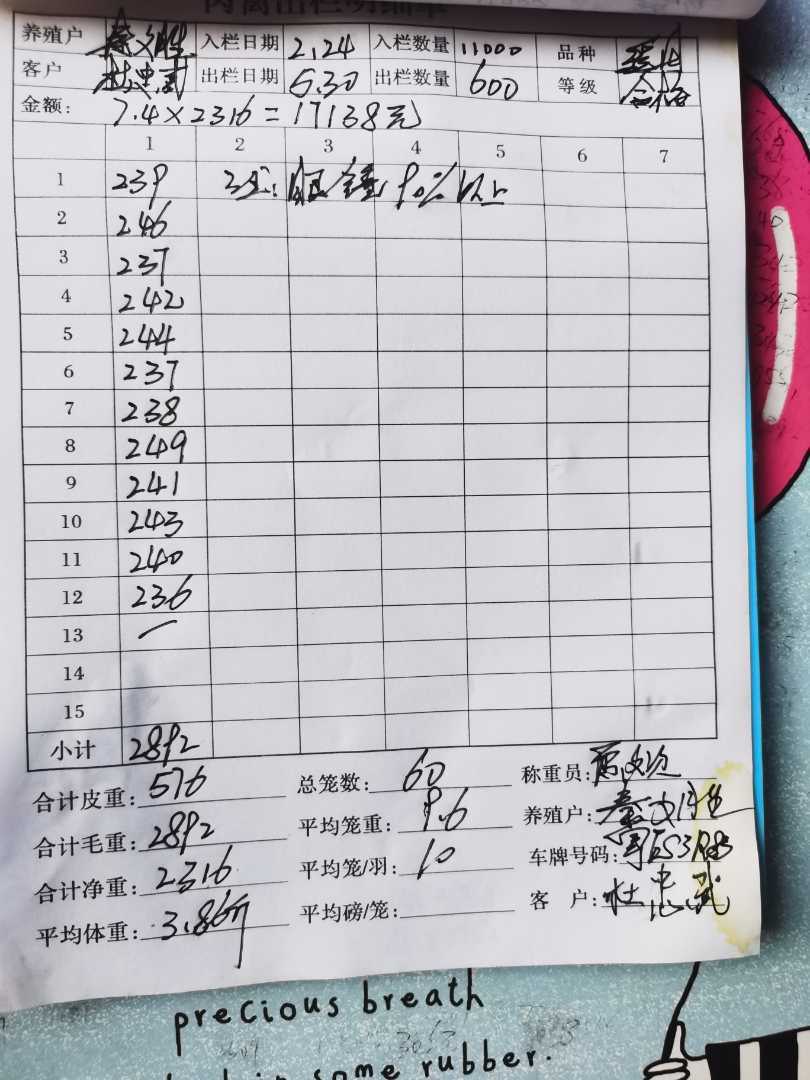 养殖户 秦文胜 入栏日期 2.24 入栏数量 11000 品种
客户 杜忠武 出栏日期 5.30 出栏数量 600 等级 合格
金额: 7.4×2316=17138元
1 2 3 4 5 6 7
1 239 90%以上
2 246
3 237
4 242
5 244
6 237
7 238
8 249
9 241
10 243
11 240
12 236
13 —
14
15
小计 2892
合计皮重: 576 总笼数: 60 称重员:
合计毛重: 2892 平均笼重: 9.6 养殖户: 秦文胜
合计净重: 2316 平均笼/羽: 10 车牌号码:
平均体重: 3.86斤 平均磅/笼: 客 户: 杜忠武
precious breath
some rubber.